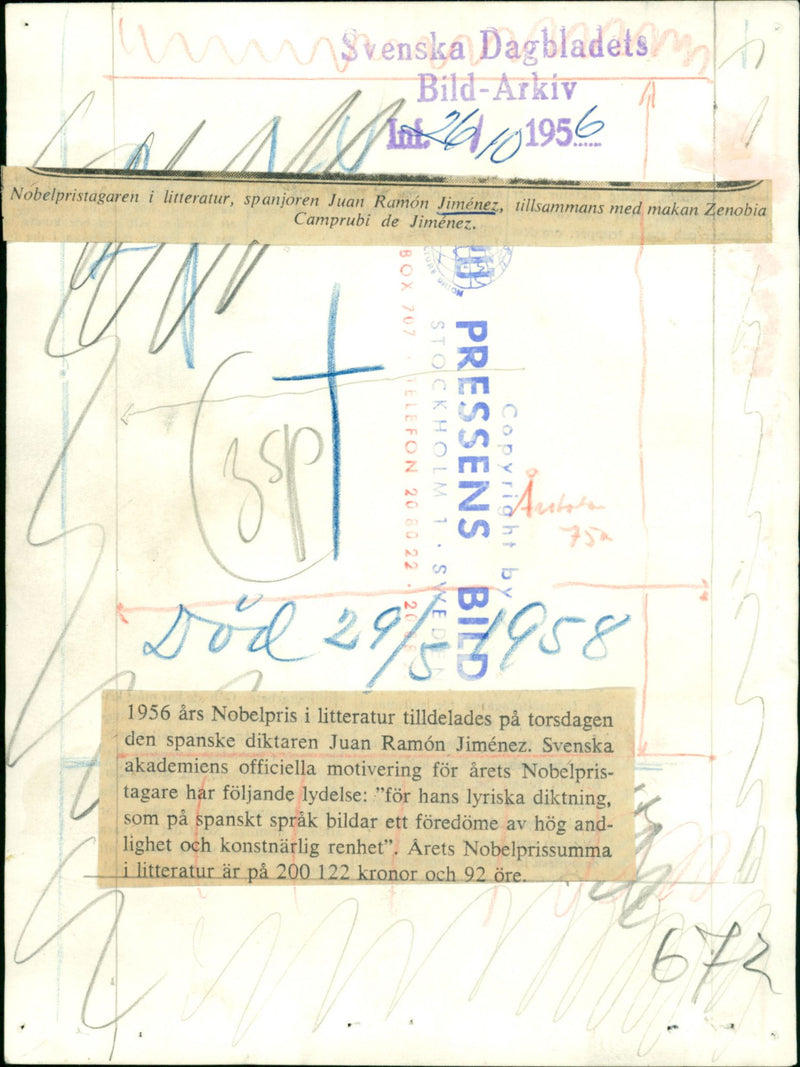 Svenska Dagbladets
Bild-Arkiv
Inf. 26/10 1956
Nobelpristagaren i litteratur, spanjoren Juan Ramón Jiménez, tillsammans med makan Zenobia
Camprubi de Jiménez.
Copyright by
PRESSENS BILD
STOCKHOLM 1 · SWEDEN
BOX 707 · TELEFON 20 80 22 · 20
3sp
75a
Död 29/5 1958
1956 års Nobelpris i litteratur tilldelades på torsdagen
den spanske diktaren Juan Ramón Jiménez. Svenska
akademiens officiella motivering för årets Nobelpris-
tagare har följande lydelse: ”för hans lyriska diktning,
som på spanskt språk bildar ett föredöme av hög and-
lighet och konstnärlig renhet”. Årets Nobelprissumma
i litteratur är på 200 122 kronor och 92 öre.
672